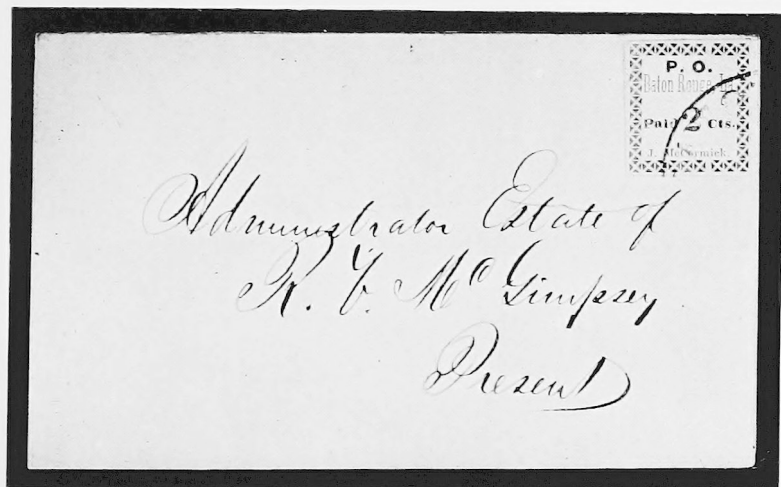 P. O.
Baton Rouge, La.
Paid 2 Cts.
J. McCormick.
Administrator Estate of
R. F. McGimpsey
Present